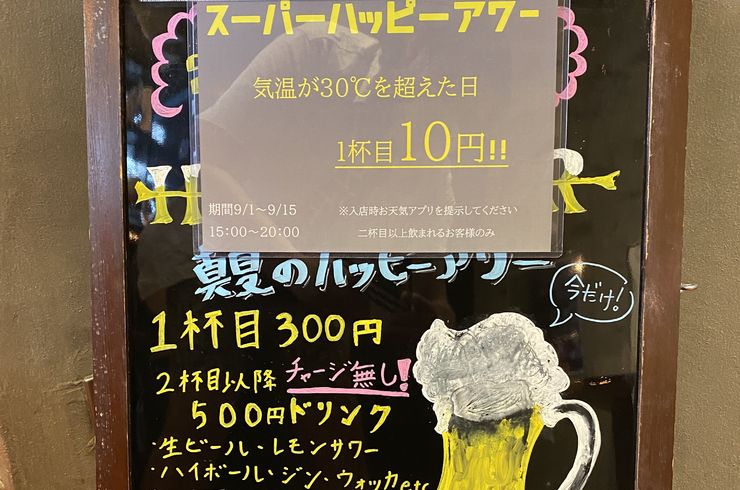 スーパーハッピーアワー
気温が30℃を超えた日
1杯目10円!!
期間9/1～9/15 ※入店時お天気アプリを提示してください
15:00～20:00 二杯目以上飲まれるお客様のみ
真夏のハッピーアワー
今だけ!
1杯目300円
2杯目以降 チャージ無し!
500円ドリンク
・生ビール・レモンサワー
・ハイボール・ジン・ウォッカetc